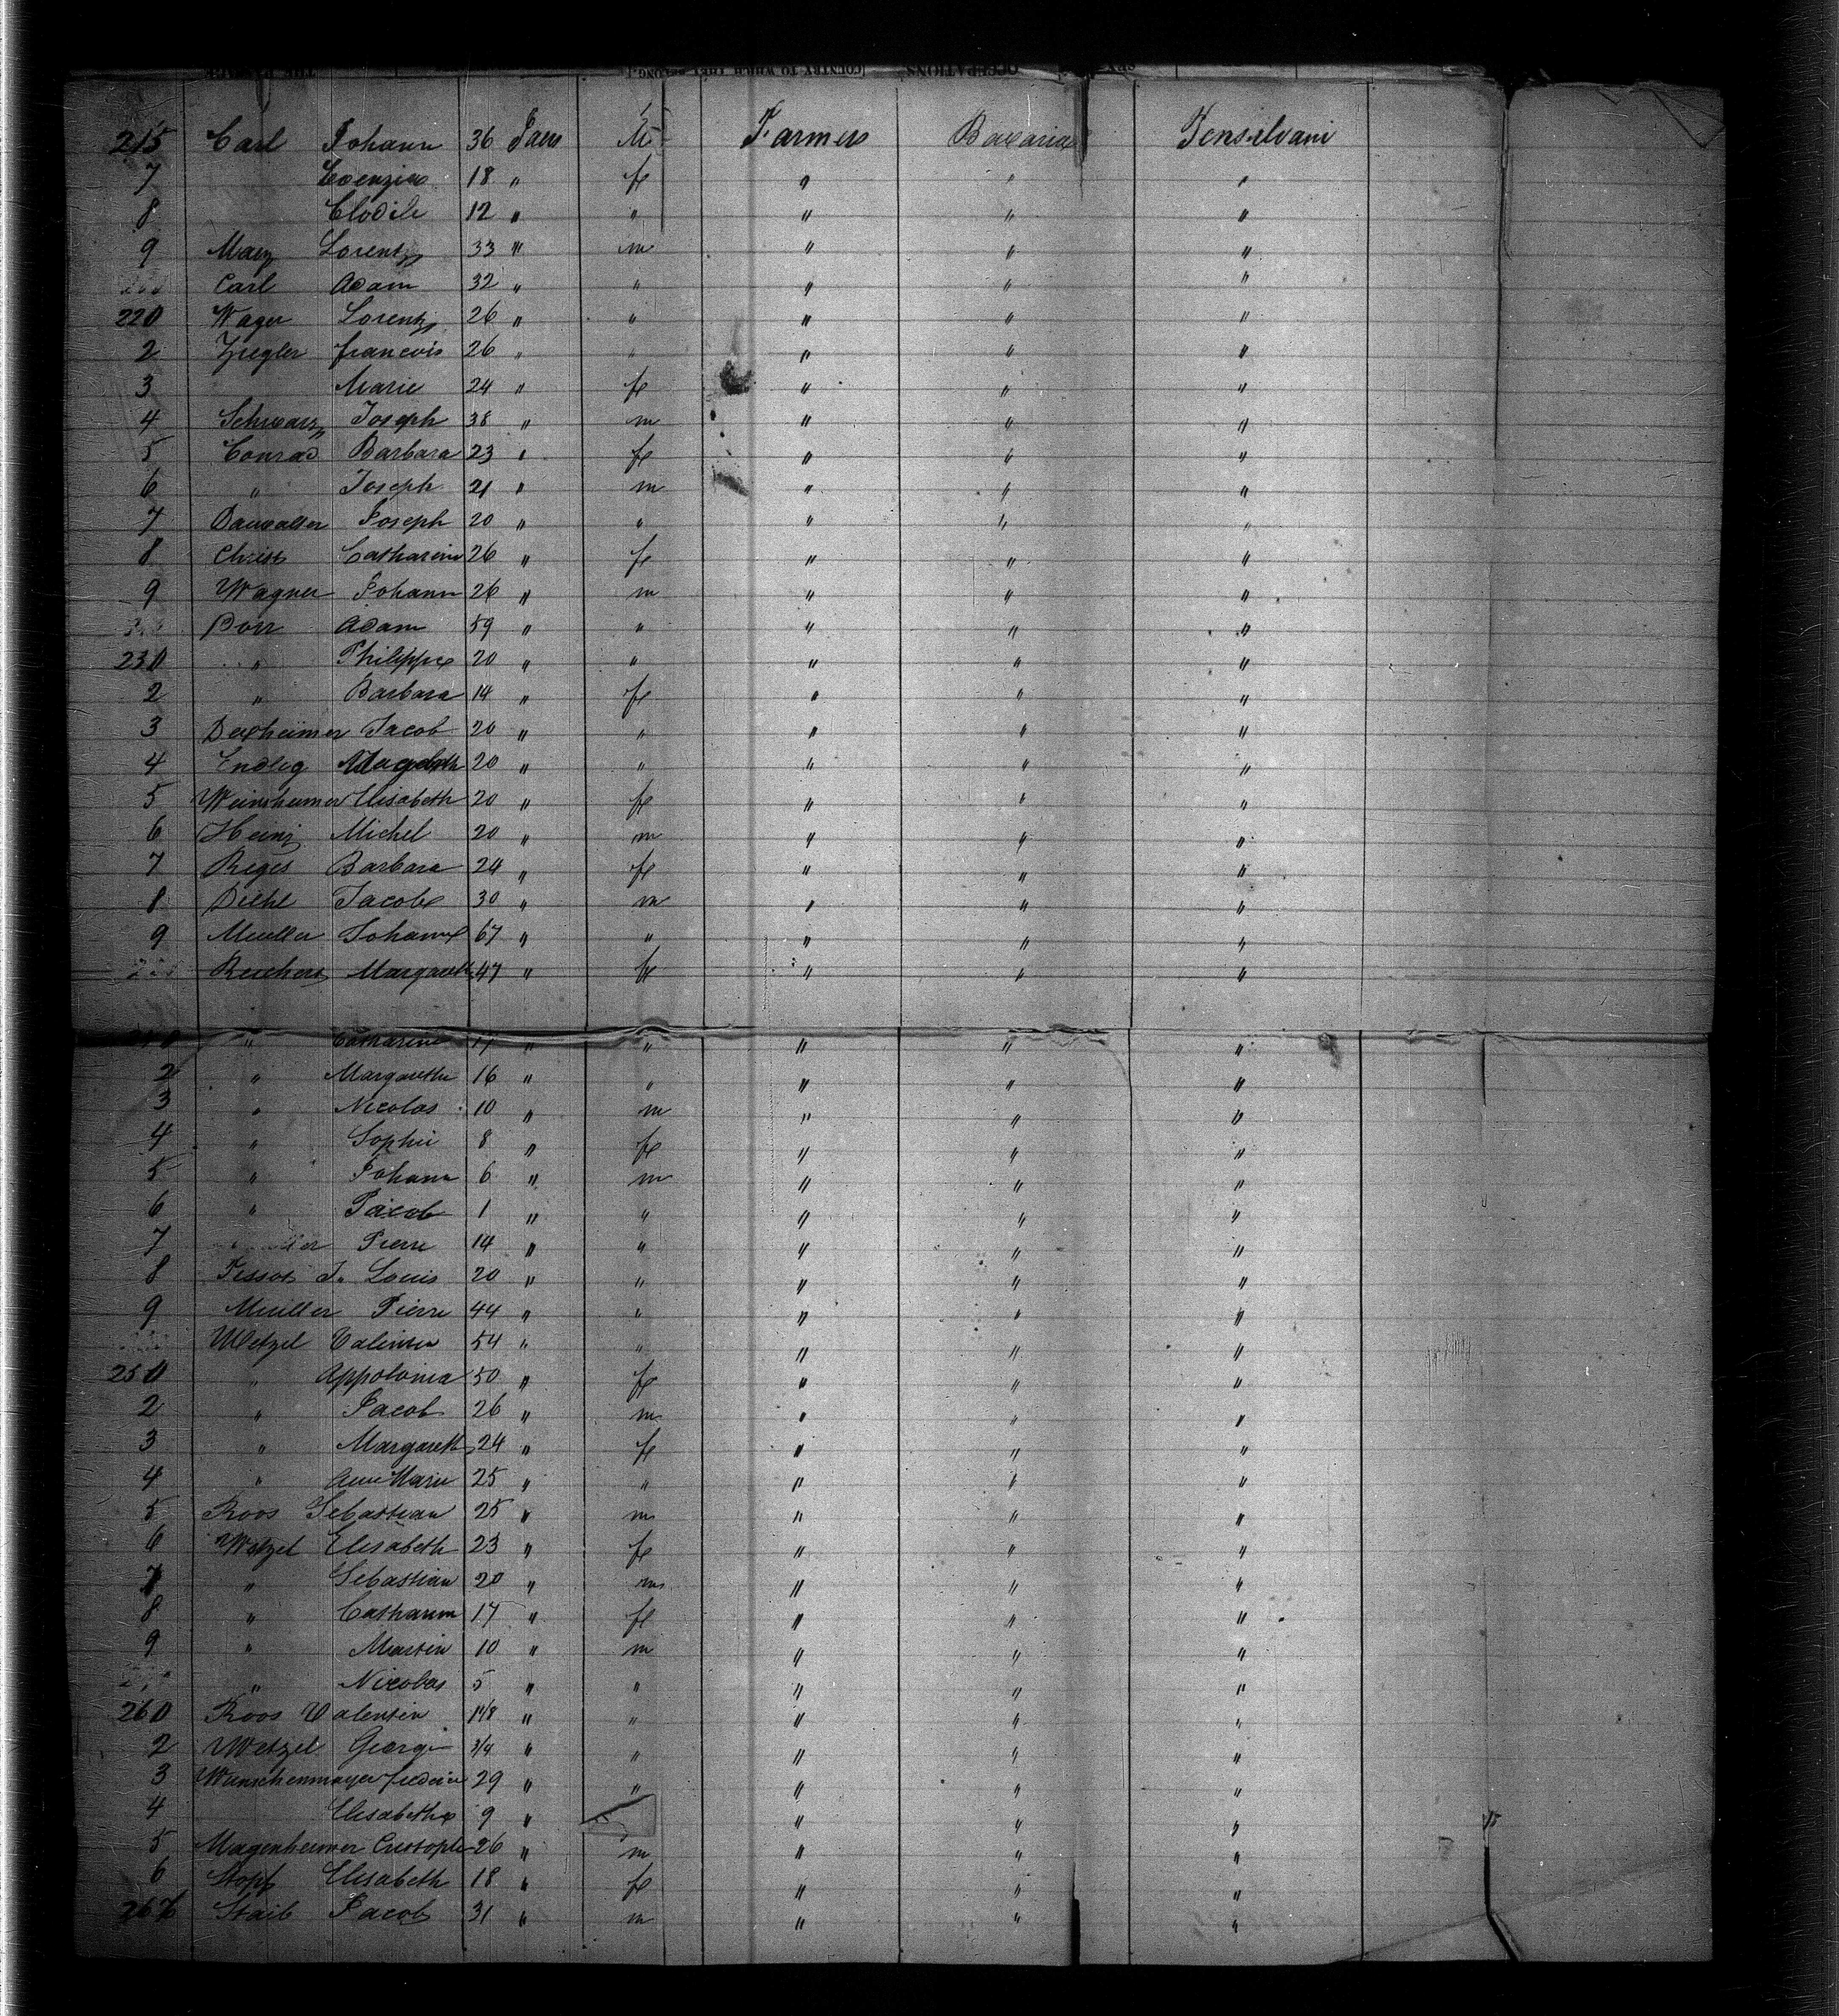 OCCUPATIONS [COUNTRY TO WHICH THEY BELONG.]
215 Carl Johann 36 M Farmers Bavaria Pensilvani
7 18 " fe " " "
8 Clodile 12 " " " " "
9 Lorentz 33 " m " " "
Carl Adam 32 " " " " "
220 Wager Lorentz 26 " " " " "
2 Ziegler francois 26 " " " " "
3 Marie 24 " fe " " "
4 Schwarz Joseph 38 " m " " "
5 Conrad Barbara 23 " fe " " "
6 " Joseph 21 " m " " "
7 Joseph 20 " " " " "
8 Christ Catharina 26 " fe " " "
9 Wagner Johann 26 " m " " "
Dörr Adam 59 " " " " "
230 " Philippe 20 " " " " "
2 " Barbara 14 " fe " " "
3 Dexheimer Jacob 20 " " " " "
4 20 " " " " "
5 Weinsheimer Elisabeth 20 " fe " " "
6 Heinz Michel 20 " m " " "
7 Reges Barbara 24 " fe " " "
8 Diehl Jacob 30 " m " " "
9 Mueller Johann 67 " " " " "
Margareth 47 " fe " " "
" Catharine 17 " " " " "
2 " Margarethe 16 " " " " "
3 " Nicolas 10 " m " " "
4 " Sophie 8 " fe " " "
5 " Johann 6 " m " " "
6 " Jacob 1 " " " " "
7 Pierre 14 " " " " "
8 J. Louis 20 " " " " "
9 Mueller Pierre 44 " " " " "
Wetzel Valentin 54 " " " " "
250 " Appolonia 50 " fe " " "
2 " Jacob 26 " m " " "
3 " Margareth 24 " fe " " "
4 " Anne Marie 25 " " " " "
5 Roos Sebastian 25 " m " " "
6 Wetzel Elisabeth 23 " fe " " "
7 " Sebastian 20 " m " " "
8 " Catharine 17 " fe " " "
9 " Martin 10 " m " " "
" Nicolas 5 " " " " "
260 Roos Valentin " " " " "
2 Wetzel George 3/4 " " " " "
3 Wunschenmayer frederic 29 " " " " "
4 Elisabethe 9 " " " "
5 Magenheimer Cristophe 26 " m " " "
6 Stopf Elisabeth 18 " fe " " "
267 Staib Jacob 31 " m " " "